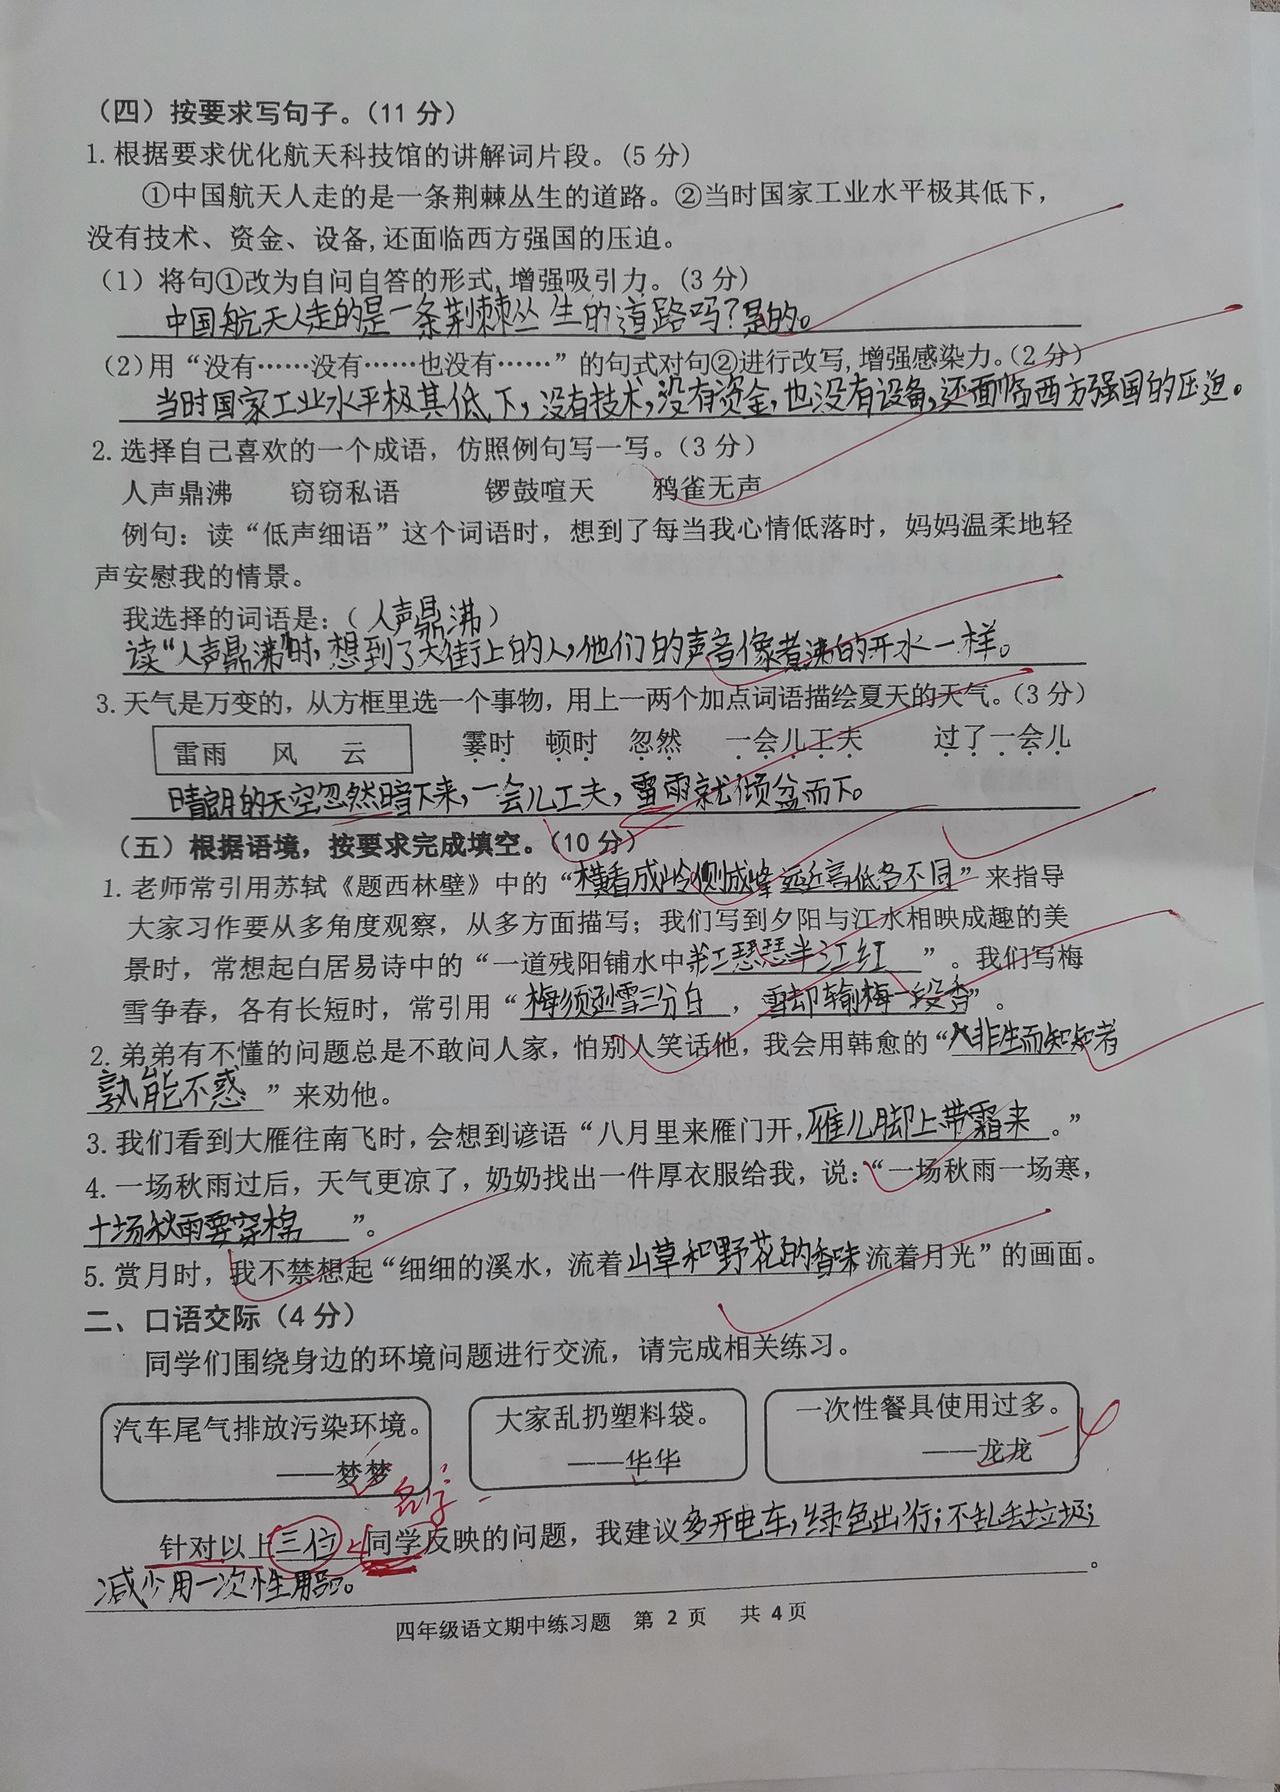 （四）按要求写句子。（11 分）
1. 根据要求优化航天科技馆的讲解词片段。（5 分）
①中国航天人走的是一条荆棘丛生的道路。②当时国家工业水平极其低下，
没有技术、资金、设备，还面临西方强国的压迫。
（1）将句①改为自问自答的形式，增强吸引力。（3 分）
中国航天人走的是一条荆棘丛生的道路吗？是的。
（2）用“没有……没有……也没有……”的句式对句②进行改写，增强感染力。（2 分）
当时国家工业水平极其低下，没有技术，没有资金，也没有设备，还面临西方强国的压迫。
2. 选择自己喜欢的一个成语，仿照例句写一写。（3 分）
人声鼎沸 窃窃私语 锣鼓喧天 鸦雀无声
例句：读“低声细语”这个词语时，想到了每当我心情低落时，妈妈温柔地轻
声安慰我的情景。
我选择的词语是：（人声鼎沸）
读“人声鼎沸”时，想到了大街上的人，他们的声音像煮沸的开水一样。
3. 天气是万变的，从方框里选一个事物，用上一两个加点词语描绘夏天的天气。（3 分）
雷雨 风 云 霎时 顿时 忽然 一会儿工夫 过了一会儿
晴朗的天空忽然暗下来，一会儿工夫，雷雨就倾盆而下。
（五）根据语境，按要求完成填空。（10 分）
1. 老师常引用苏轼《题西林壁》中的“横看成岭侧成峰 远近高低各不同”来指导
大家习作要从多角度观察，从多方面描写；我们写到夕阳与江水相映成趣的美
景时，常想起白居易诗中的“一道残阳铺水中 半江瑟瑟半江红”。我们写梅
雪争春，各有长短时，常引用“梅须逊雪三分白，雪却输梅一段香”。
2. 弟弟有不懂的问题总是不敢问人家，怕别人笑话他，我会用韩愈的“人非生而知知者
孰能不惑”来劝他。
3. 我们看到大雁往南飞时，会想到谚语“八月里来雁门开，雁儿脚上带霜来。”
4. 一场秋雨过后，天气更凉了，奶奶找出一件厚衣服给我，说：“一场秋雨一场寒，
十场秋雨要穿棉”。
5. 赏月时，我不禁想起“细细的溪水，流着山草和野花的香味流着月光”的画面。
二、口语交际（4 分）
同学们围绕身边的环境问题进行交流，请完成相关练习。
汽车尾气排放污染环境。 大家乱扔塑料袋。 一次性餐具使用过多。
——梦梦 ——华华 ——龙龙 -4
名字
针对以上三位同学反映的问题，我建议多开电车，绿色出行；不乱丢垃圾；
减少用一次性用品。
四年级语文期中练习题 第 2 页 共 4 页